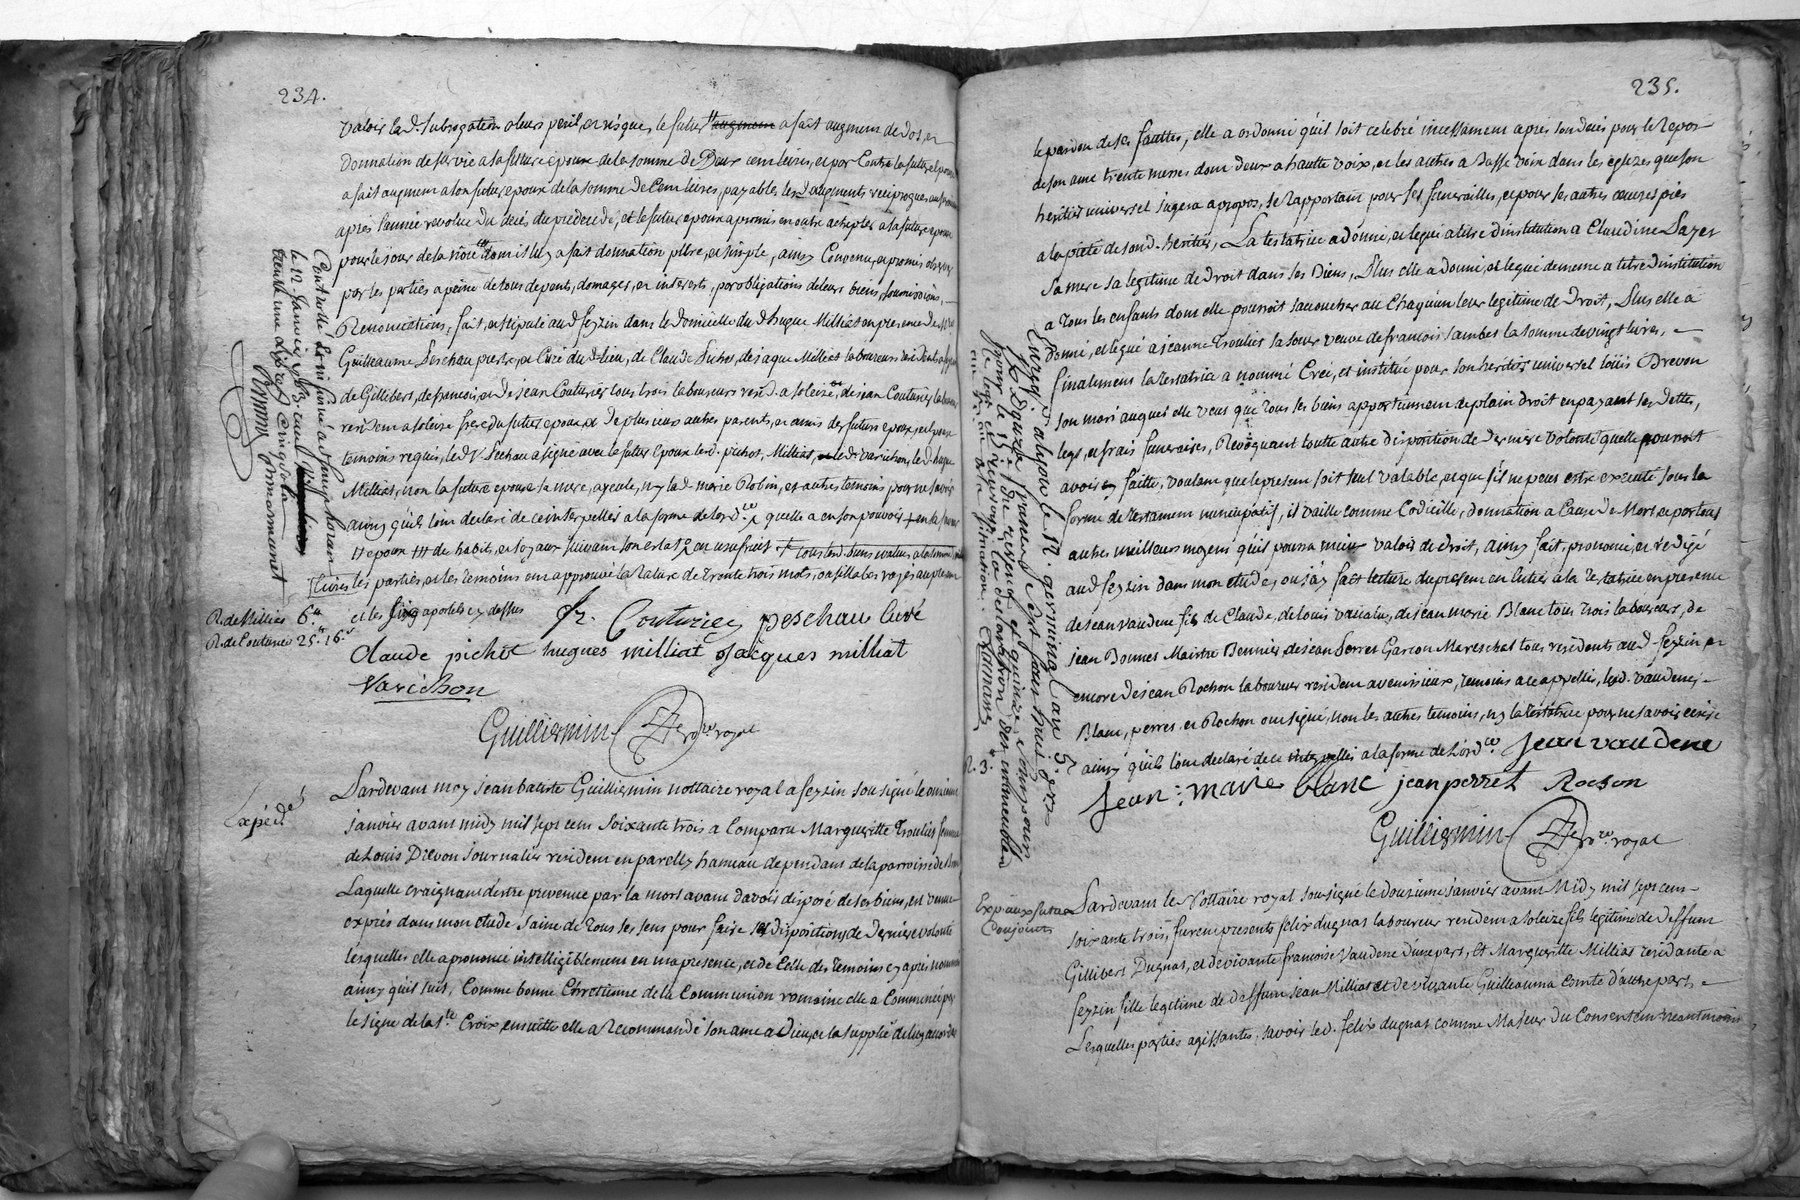 234.
valoir lad. subrogation a leurs peril, et risques, le futur a fait augment de dot, et
donnation de survie a sa future epouse de la somme de Deux cent livres, et par Contre la future epouse
a fait augment a son futur epoux de la somme de Cent livres, payables lesd. augments reciproques
apres l'année revolue du decès du predecedé, et le futur epoux a promis en outre achepter a la future epouse
pour le jour de la nôce dont il luy a fait donnation pure, et simple, ainsy Convenu, et promis observer
par les parties a peine de tous depents, domages, et interests, par obligations de leurs biens, soumissions,
Renonciations, fait, et stipulé aud. feyzin dans le domicille dud. hugue Milliat en presence de
Guilleaume Peschau prestre, et Curé dud. lieu, de Claude Pichot, de jaque Milliat laboureurs
de Gillibert, de francois, et de jean Couturier tous trois laboureurs resid. a soleize, de jean Couturier
resident a soleize frere du futur epoux et de plusieurs autres parents, et amis des futurs epoux,
temoins requis, led. Sr. Peschau a signé avec le futur Epoux led. pichot, Milliat, led. varichon, led. hugue
Milliat, non la future epouse sa mere, ayeule, ny lad. marie Robin, et autres temoins pour ne savoir
ainsy qu'ils l'ont declaré de ce interpellés a la forme de l'ord.ce
epoux de habits, et joyaux suivant son estat en usufruit
livres les parties, et les temoins ont approuvé la rature de trente trois mots, ou sillabes rayés au present
et les cinq apostils cy dessus
R. de Milliat 6.
R. de Couturier 25. 16.
fr. Couturier peschau curé
Claude pichot hugues milliat jacques milliat
Varichon
Guilliermin no.re royal
Controllé a St. simphorien
le 12 Janvier 1763 reçu
trente une livres cinq sols
Expedié
Pardevant moy jean batiste Guilliermin nottaire royal a feyzin sousigné le onzieme
janvier avant midy mil sept cent soixante trois a Comparu Margueritte Troulier femme
de Louis Drevon journalier resident en parelly hameau dependant de la parroisse de
Laquelle craignant d'estre prevenue par la mort avant d'avoir disposé de ses biens, est venue
exprès dans mon etude saine de tous ses sens pour faire ses dispositions de derniere volonté
lesquelles elle a prononcé intelligiblement en ma presence, et de Celle des temoins cy après nommés
ainsy qu'il suit, Comme bonne Chretienne de la Communion romaine elle a Commencé par
le signe de la Ste. Croix ensuitte elle a Recommandé son ame a dieu, et la supplié de luy accorder
235.
le pardon de ses fauttes, elle a ordonné qu'il soit celebré incessament après son decès pour le repos
de son ame trente messes dont deux a hautte voix, et les autres a basse voix dans les eglizes que son
heritier universel jugera a propos, se rapportant pour ses funerailles, et pour ses autres oeuvres pies
a la pieté de sond. heritier, La testatrice a donné, et legué a titre d'institution a Claudine Payet
sa mere sa legitime de droit dans ses Biens, Plus elle a donné, et legué de meme a titre d'institution
a tous les enfants dont elle pourroit s'accoucher a Chaqu'un leur legitime de Droit, Plus elle a
donné, et legué a jeanne Troulier sa soeur veuve de francois jambet la somme de vingt livres,
finalement la testatrice a nommé Creé, et institué pour son heritier universel loüis Drevon
son mari auquel elle veut que tous ses biens appartiennent de plain droit en payant ses dettes,
legs, et frais funeraires, Revoquant toutte autre disposition de derniere volonté qu'elle pourroit
avoir cy faitte, voulant que le present soit seul valable, et que s'il ne peut estre executé sous la
forme de testament nuncupatif, il vaille comme Codicille, donnation a Cause de Mort et par tous
autres meilleurs moyens qu'il pourra mieux valoir de droit, ainsy fait, prononcé, et redigé
aud. feyzin dans mon etude, ou j'ay fait lecture du present en entier a la Testatrice en presence
de jean vaudene fils de Claude, de louis de jean marie Blanc tous trois laboureurs, de
jean Bonnet Maistre de jean Perret Garçon Mareschal tous residents aud. feyzin et
encore de jean Rochon laboureur resident a venissieux, temoins a ce appellés, led. vaudene,
Blanc, perret, et Rochon ont signé, non les autres temoins, ny la testatrice pour ne savoir ecrire
ainsy qu'ils l'ont declaré de ce interpellés a la forme de l'ord.ce jean vaudene
R. 3.
jean: marie blanc jean perret Rochon
Guilliermin no.re royal
Enreg. a lyon le 12. germinal an 5.
Exp. aux futurs
Conjoints
Pardevant le Nottaire royal sousigné le douzieme janvier avant Midy mil sept cent
soixante trois, furent presents felix dugnat laboureur resident a soleize fils legitime de deffunt
Gillibert Dugnat, et de vivante francoise Vaudene d'une part, Et Margueritte Milliat residante a
feyzin fille legitime de deffunt jean Milliat et de vivante Guilleauma Comte d'autre part,
Lesquelles parties agissantes, savoir led. felix dugnat comme Majeur du Consentement neantmoins